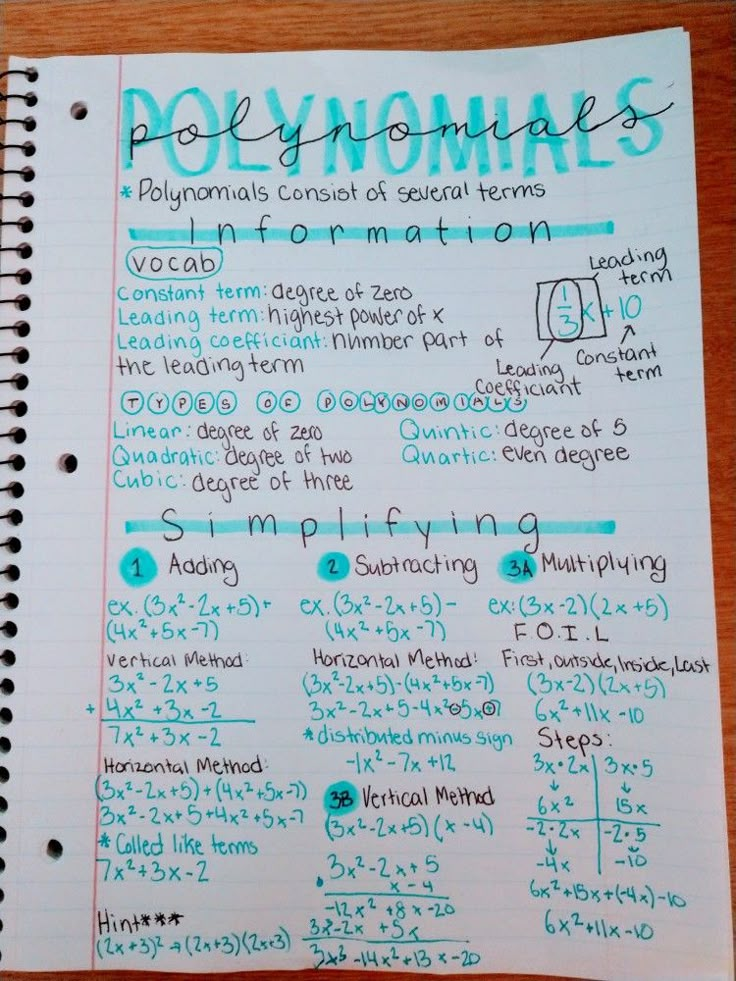 POLYNOMIALS
polynomials
* Polynomials consist of several terms
Information
vocab
Constant term: degree of zero
Leading term: highest power of x
Leading coefficiant: number part of
the leading term
Leading
term
1/3 x + 10
Leading
Coefficiant
Constant
term
TYPES OF POLYNOMIALS
Linear: degree of zero
Quadratic: degree of two
Cubic: degree of three
Quintic: degree of 5
Quartic: even degree
Simplifying
1 Adding
ex. (3x²-2x+5)+
(4x²+5x-7)
Vertical Method:
3x²-2x+5
+ 4x²+3x-2
7x²+3x-2
Horizontal Method:
(3x²-2x+5)+(4x²+5x-7)
3x²-2x+5+4x²+5x-7
* Colled like terms
7x²+3x-2
Hint***
(2x+3)²→(2x+3)(2x+3)
2 Subtracting
ex. (3x²-2x+5)-
(4x²+5x-7)
Horizontal Method:
(3x²-2x+5)-(4x²+5x-7)
3x²-2x+5-4x²-5x+7
* distributed minus sign
-1x²-7x+12
3B Vertical Method
(3x²-2x+5)(x-4)
3x²-2x+5
• x-4
-12x²+8x-20
3x³-2x +5x
3x³-14x²+13x-20
3A Multiplying
ex: (3x-2)(2x+5)
F.O.I.L
First, outside, Inside, Last
(3x-2)(2x+5)
6x²+11x-10
Steps:
3x•2x 3x•5
↓ ↓
6x² 15x
-2•2x -2•5
↓ ↓
-4x -10
6x²+15x+(-4x)-10
6x²+11x-10